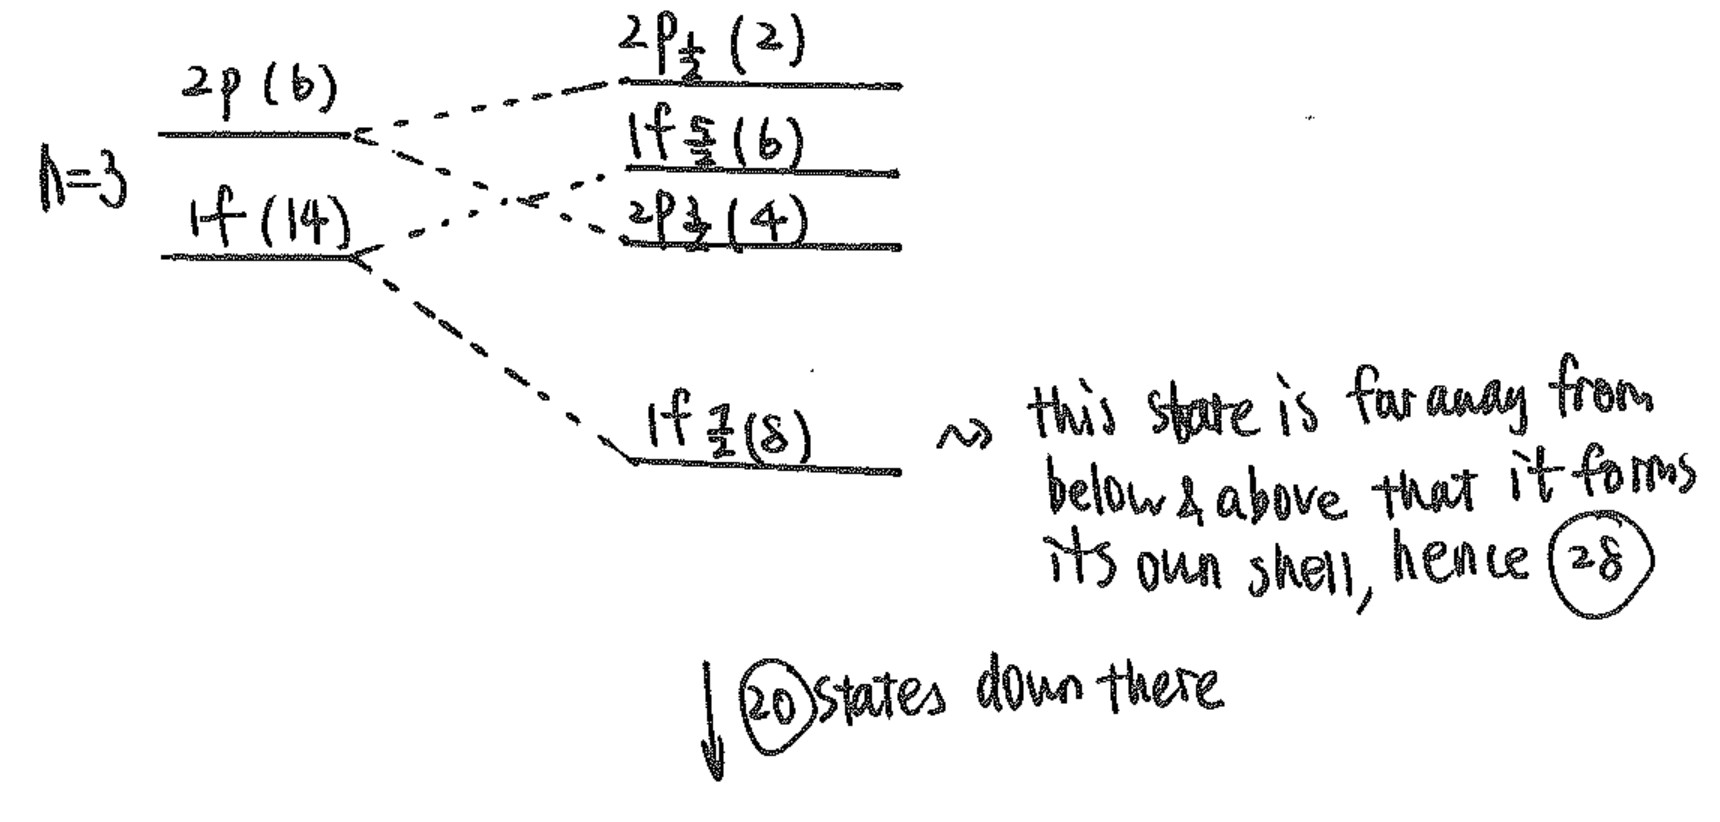 2p (6)
n=3
1f (14)
2p 1/2 (2)
1f 5/2 (6)
2p 3/2 (4)
1f 7/2 (8)
~> this state is far away from
below & above that it forms
its own shell, hence 28
↓ 20 states down there